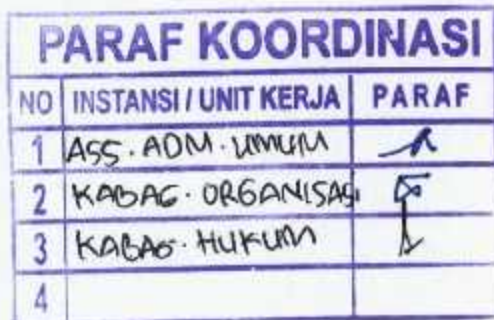 PARAF KOORDINASI
NO INSTANSI / UNIT KERJA PARAF
1 ASS. ADM. UMUM
2 KABAG. ORGANISASI
3 KABAG. HUKUM
4